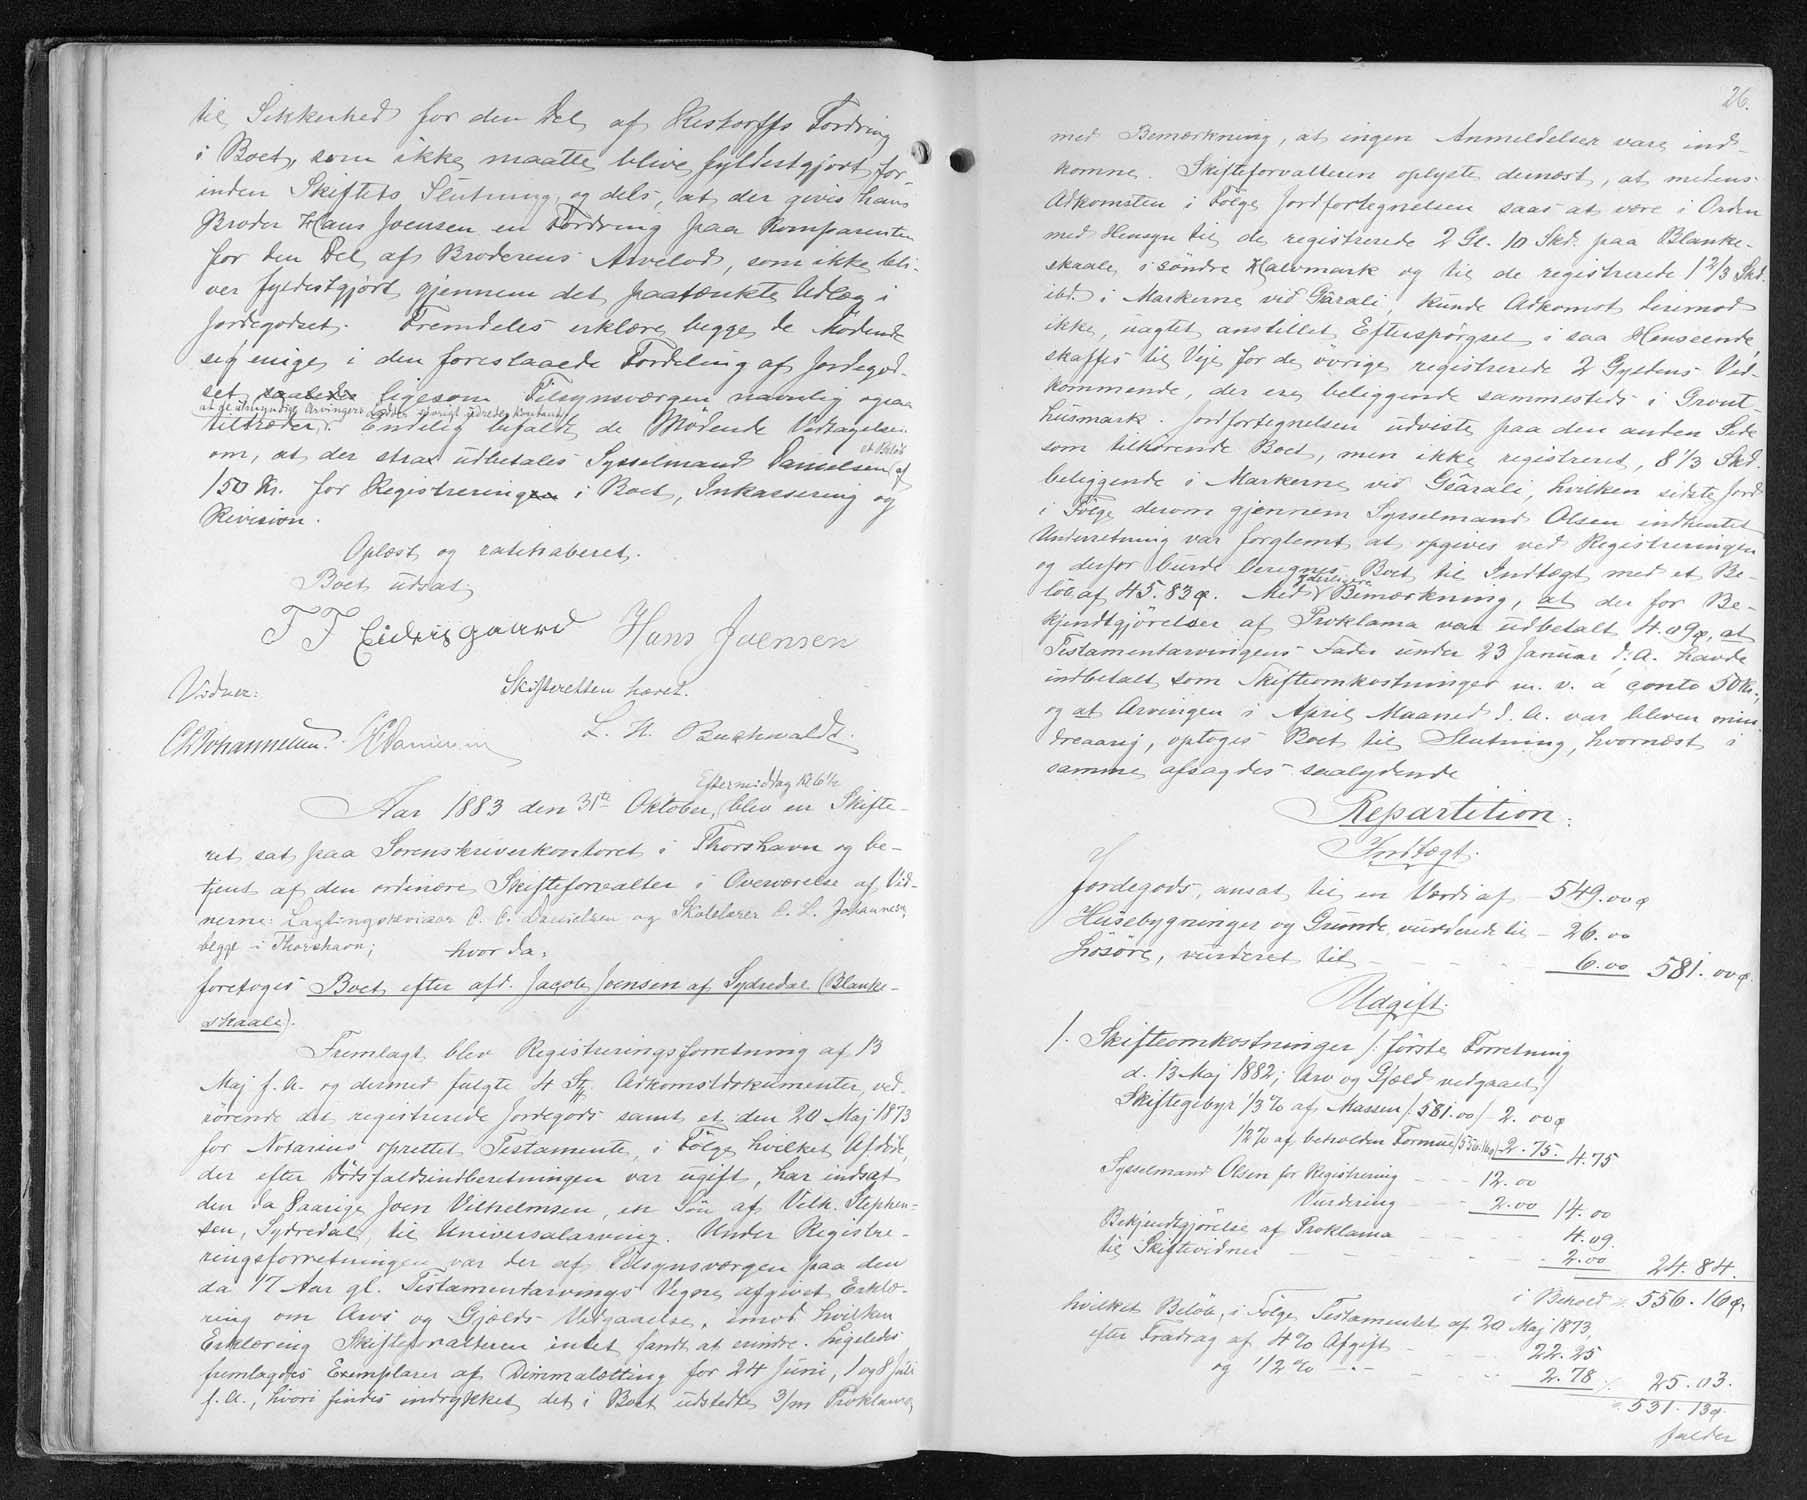 til Sikkerhed for den Del af Restorffs Fordring
i Boet, som ikke maatte blive fyldestgjort for
inden Skiftets Slutning, og dels, at der gives hans
Broder Hans Joensen en Fordring paa Komparenten
for den Del af Broderens Arvelod, som ikke bli-
ver fyldestgjort gjennem det paatænkte Udlæg i
Jordegodset. Fremdeles erklære begge de Mödende
sig enige i den foreslaaede Fordeling af Jordegod-
set, saaledes ligesom Tilsynsværgen navnlig ogsaa
at de umyndige Arvingers Lodder övrigt udredes kontant
tiltræder. Endelig befaldt de Mödende Vedtagelsen
om, at der strax udbetales Sysselmand Danielsen et Belöb af
150 Kr. for Registreringen i Boet, Inkassering og
Revision.
Oplæst og ratihaberet.
Boet udsat.
J J Eidisgaard Hans Joensen
Skifteretten hævet.
Vidner:
L. H. Buchwaldt
Ch Johannesen. CC Danielsen
Eftermiddag Kl 6½
Aar 1883 den 31te Oktober, blev en Skifte-
ret sat paa Sorenskriverkontoret i Thorshavn og be-
tjent af den ordinære Skifteforvalter i Overværelse af Vid-
nerne: Lagtingsrevisor C. C. Danielsen og Skolelærer C. L. Johannesen,
begge i Thorshavn;
hvor da:
foretoges Boet efter afd. Jacob Joensen af Sydredal (Blanke-
skaale).
Fremlagt blev Registreringsforretning af 13
Maj f. A. og dermed fulgte 4 Stk. Adkomstdokumenter, ved-
rörende det registrerede Jordegods samt et den 20 Maj 1873
for Notarius oprettet Testamente, i Fölge hvilket Afdöde,
der efter Dödsfaldsindberetningen var ugift, har indsat
den da 8aarige Joen Vilhelmsen, en Sön af Vilh. Stephen-
sen, Sydredal, til Universalarving. Under Registre-
ringsforretningen var der af Tilsynsværgen paa den
da 17 Aar gl. Testamentarvings Vegne afgivet Erklæ-
ring om Arvs og Gjælds Vedgaaelse, imod hvilken
Erklæring Skifteforvalteren intet fandt at erindre. Ligeledes
fremlagdes Exemplarer af Dimmalætting for 24 Juni, 1 og 8 Juli
f. A., hvori findes indrykket det i Boet udstedte 3/m Proklama,
26.
med Bemærkning, at ingen Anmeldelser vare ind-
komne. Skifteforvalteren oplyste dernæst, at medens
Adkomsten i Fölge Jordfortegnelsen saas at være i Orden
med Hensyn til de registrerede 2 Gl. 10 Skd. paa Blanke-
skaale, i söndre Halvmark og til de registrerede 1 2/3 Skd.
ibd. i Markerne ved Gärali, kunde Adkomst derimod
ikke, uagtet anstillet Efterspörgsel i saa Henseende,
skaffes til Veje for de övrige registrerede 2 Gyldens Ved-
kommende, der ere beliggende sammesteds i
husmark. Jordfortegnelsen udviste paa den anden Side
som tilhörende Boet, men ikke registreret, 8 1/3 Skd.
beliggende i Markerne ved Gärali, hvilken sidste Jord
i Fölge derom gjennem Sysselmand Olsen indhentet
Underretning var forglemt at opgives ved Registreringen
og derfor burde beregnes Boet til Indtægt med et Be-
löb af 45. 83 ø. Med yderligere Bemærkning, at der for Be-
kjendtgjörelser af Proklama var udbetalt 4. 09 ø, at
Testamentarvingens Fader under 23 Januar d. A. havde
indbetalt som Skifteomkostninger m. v. a conto 50 Kr.,
og at Arvingen i April Maaned d. A. var bleven min-
dreaarig, optoges Boet til Slutning, hvornæst i
samme afsagdes saalydende
Repartition:
Indtægt.
Jordegods, ansat til en Værdi af — 549. 00 ø
Husebygninger og Grunde, vurderede til — 26. 00
Lösöre, vurderet til — 6. 00 581. 00 ø.
Udgift.
1. Skifteomkostninger /: förste Forretning
d. 13 Maj 1882; Arv og Gjæld vedgaaet /
Skiftegebyr 1/3 % af Massen /: 581. 00 / — 2. 00 ø
1/2 % af beholden Formue /: 556. 16 ø / — 2. 75. 4. 75
Sysselmand Olsen for Registrering — 12. 00
Vurdering — 2. 00 14. 00
Bekjendtgjörelse af Proklama 4. 09.
til Skiftevidner — 2. 00 24. 84.
i Behold = 556. 16 ø,
hvilket Belöb, i Fölge Testamentet af 20 Maj 1873,
efter Fradrag af 4 % Afgift — 22. 25
og 1/2 % — 2. 78 ./. 25. 03.
= 531. 13 ø.
falder